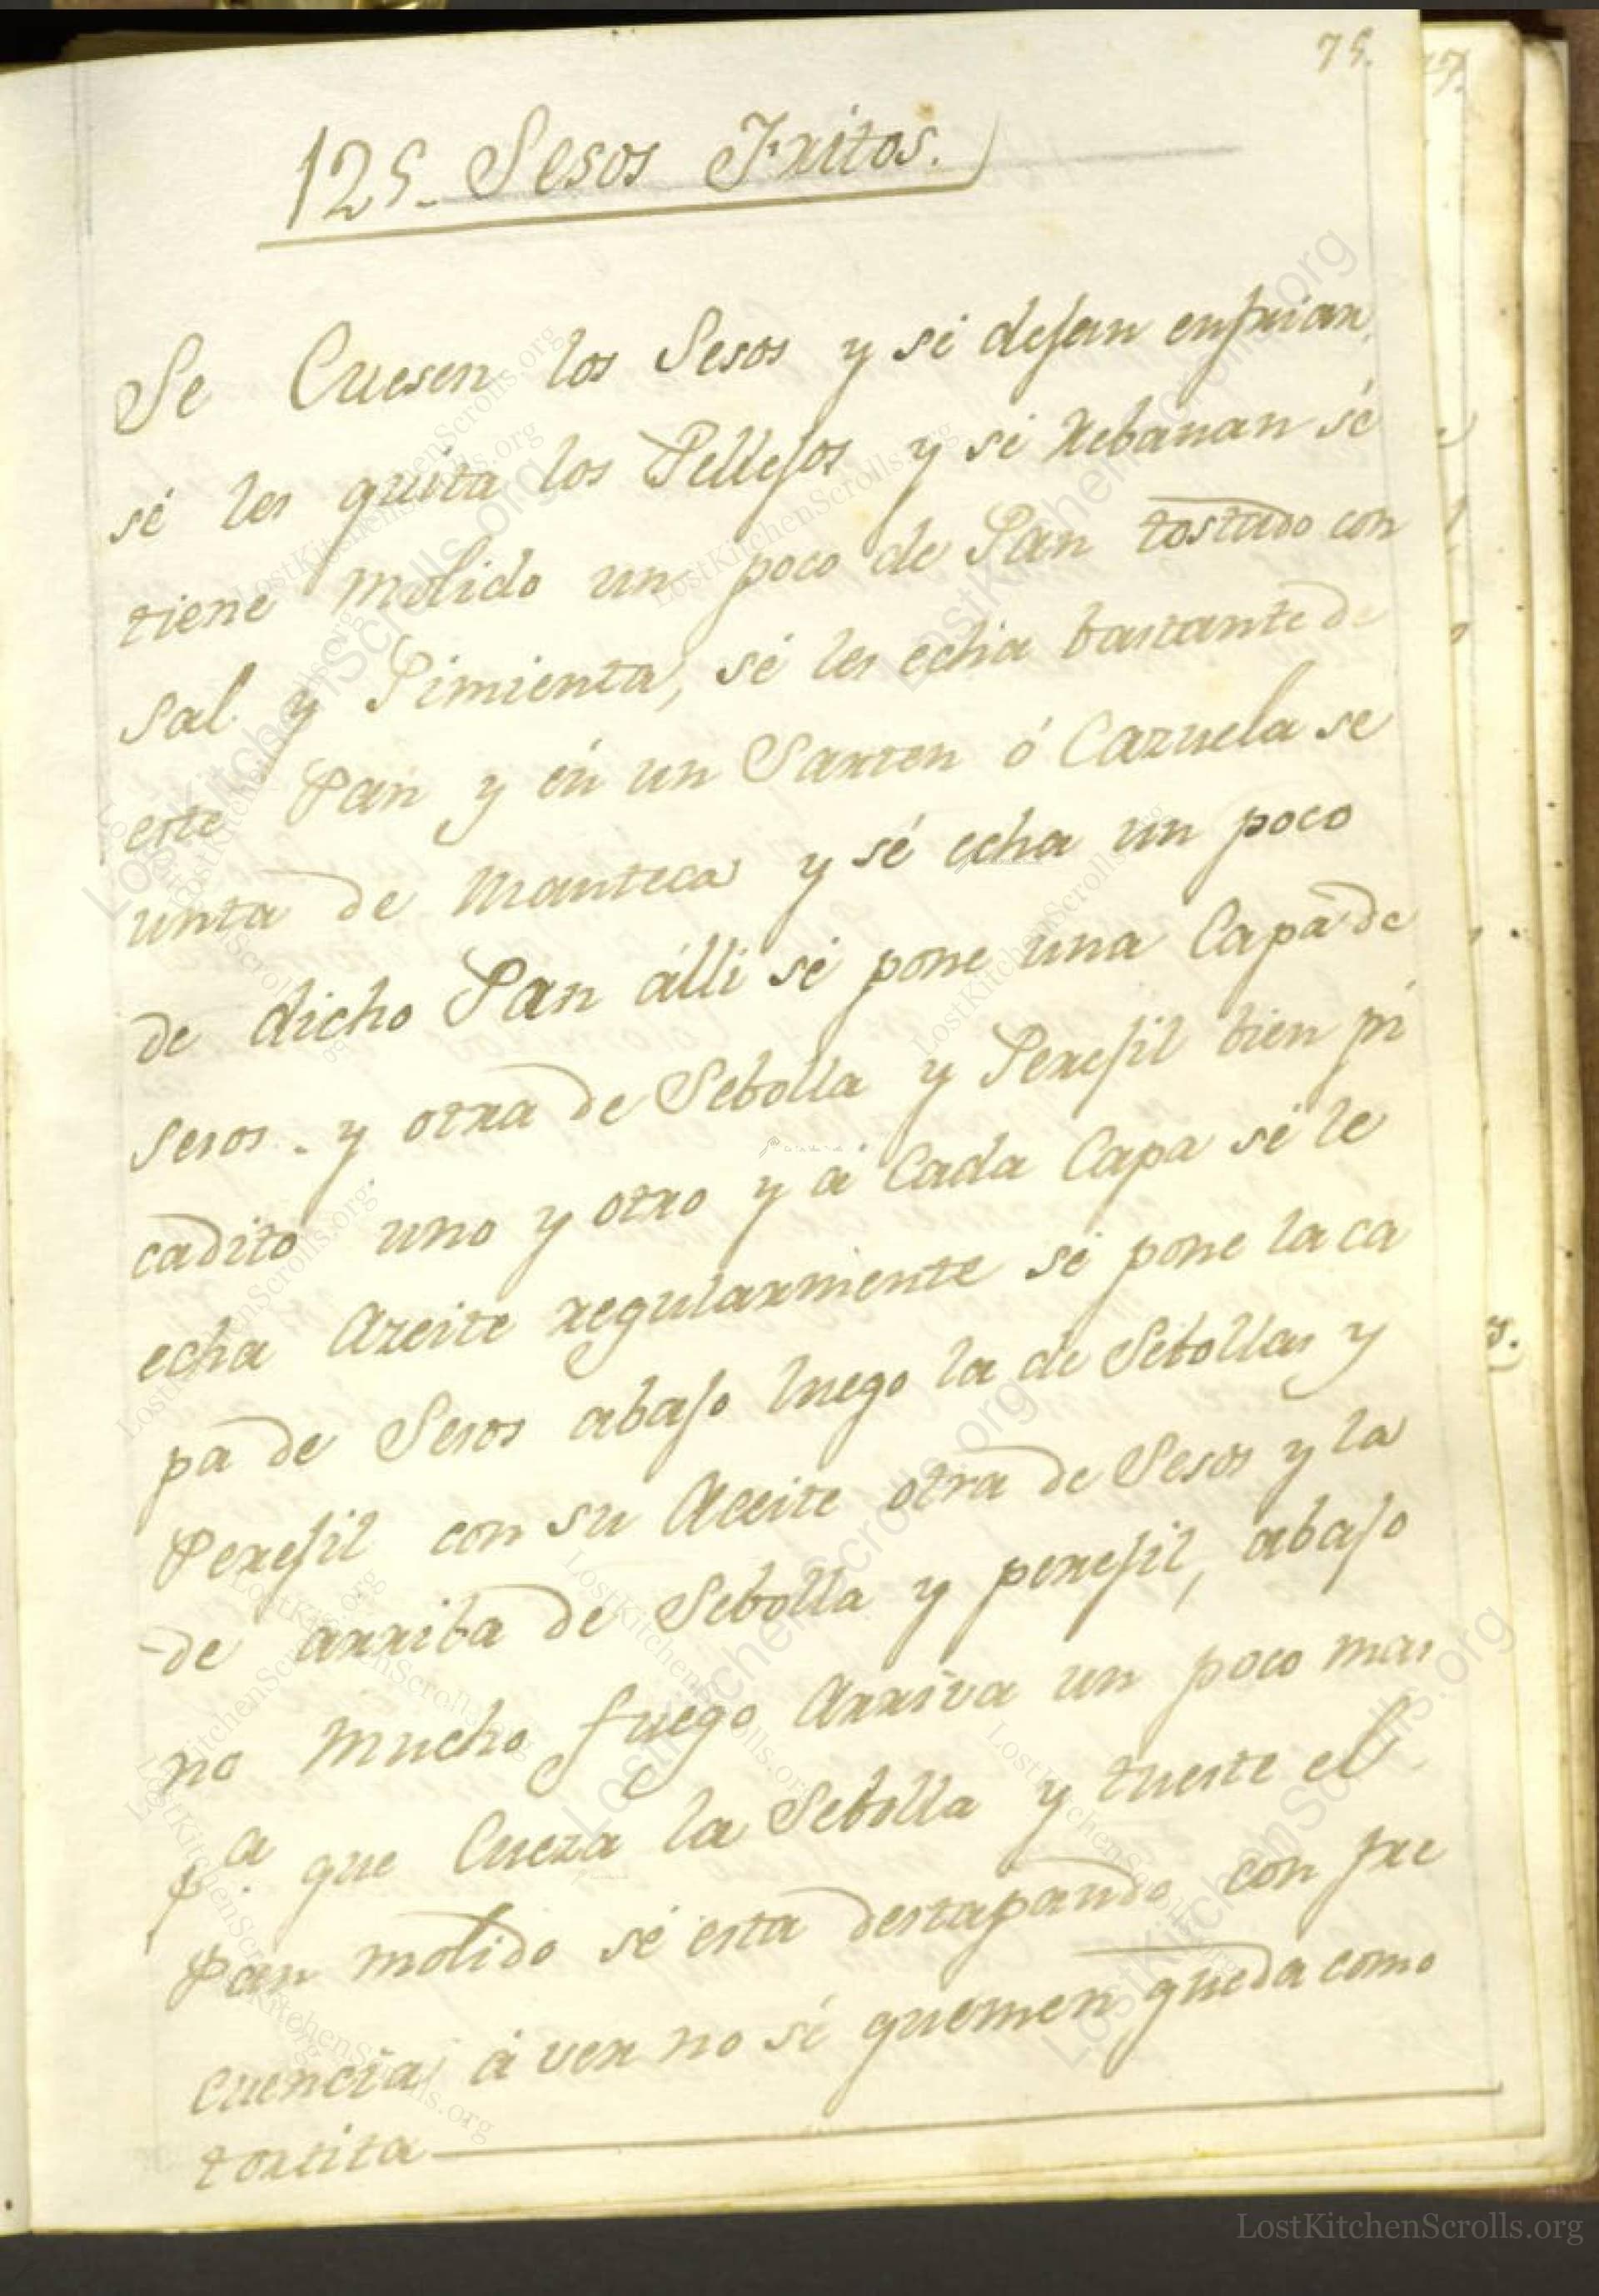 75.
125. Sesos Fritos.
Se Cuesen los Sesos y sé dejan enfriar,
sé les quita los Pellejos y sé Rebanan sé
tiene molido un poco de Pan tostado con
sal y Pimienta, sé les echa bastante de
este Pan y én un Sarten ó Cazuela se
unta de Manteca y sé echa un poco
de dicho Pan álli sé pone una Capa de
Sesos - y otra de Sebolla y Perejil bien pi
cadito uno y otro y á Cada Capa sé le
echa Azeite regularmente sé pone la ca
pa de Sesos abajo luego la de Sebollas y
Perejil con su Aceite otra de Sesos y la
de arriba de Sebolla y perejil, abajo
no mucho fuego Arriva un poco mas
pa. que Cueza la Sebolla y tueste el
Pan molido sé esta destapando con fre
cuencia á ver no sé quemen queda como
tortita
LostKitchenScrolls.org